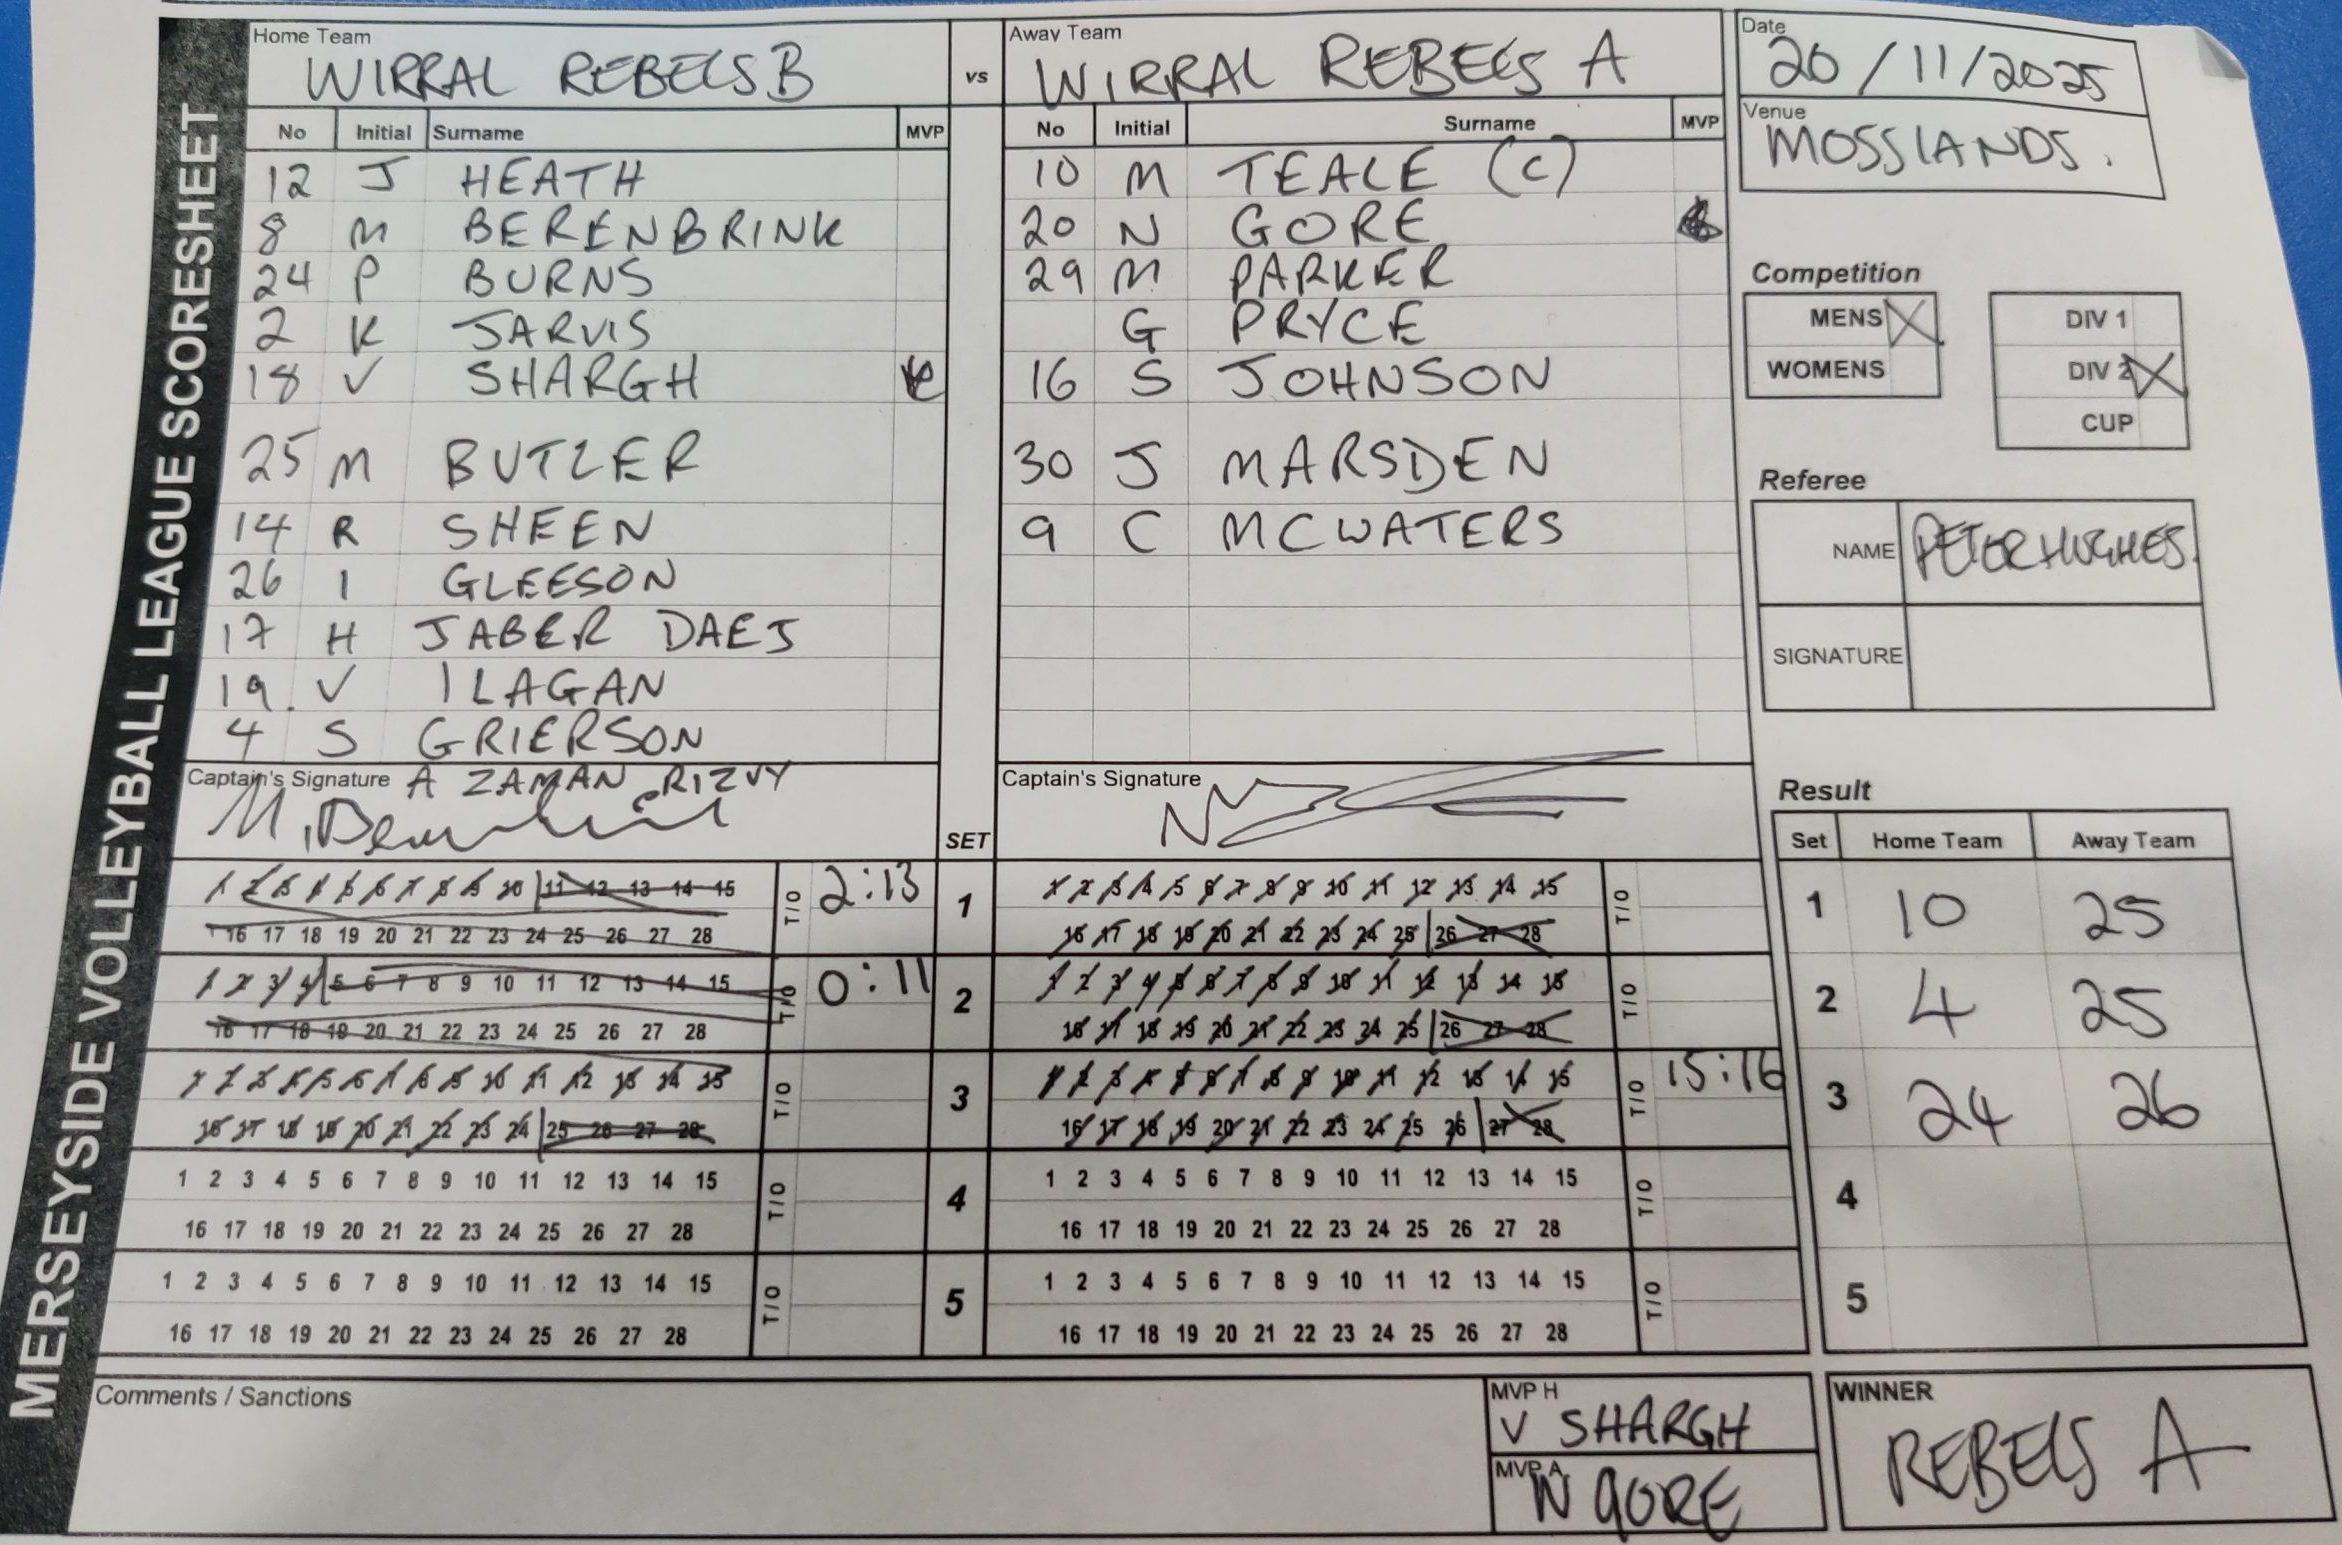 MERSEYSIDE VOLLEYBALL LEAGUE SCORESHEET
Home Team
WIRRAL REBELS B
vs
Away Team
WIRRAL REBELS A
Date
20/11/2025
Venue
MOSSLANDS.
No Initial Surname MVP
12 J HEATH
8 M BERENBRINK
24 P BURNS
2 K JARVIS
18 V SHARGH
25 M BUTLER
14 R SHEEN
26 I GLEESON
17 H JABER DAEJ
19. V ILAGAN
4 S GRIERSON
A ZAMAN RIZVY
No Initial Surname MVP
10 M TEALE (C)
20 N GORE
29 M PARKER
G PRYCE
16 S JOHNSON
30 J MARSDEN
9 C MCWATERS
Competition
MENS X
WOMENS
DIV 1
DIV 2 X
CUP
Referee
NAME PETER HUGHES.
SIGNATURE
Captain's Signature
SET
Captain's Signature
1 2 3 4 5 6 7 8 9 10 11 12 13 14 15
16 17 18 19 20 21 22 23 24 25 26 27 28
T/O 2:13
1
1 2 3 4 5 6 7 8 9 10 11 12 13 14 15
16 17 18 19 20 21 22 23 24 25 26 27 28
T/O
1 2 3 4 5 6 7 8 9 10 11 12 13 14 15
16 17 18 19 20 21 22 23 24 25 26 27 28
T/O 0:11
2
1 2 3 4 5 6 7 8 9 10 11 12 13 14 15
16 17 18 19 20 21 22 23 24 25 26 27 28
T/O
1 2 3 4 5 6 7 8 9 10 11 12 13 14 15
16 17 18 19 20 21 22 23 24 25 26 27 28
T/O
3
1 2 3 4 5 6 7 8 9 10 11 12 13 14 15
16 17 18 19 20 21 22 23 24 25 26 27 28
T/O 15:16
1 2 3 4 5 6 7 8 9 10 11 12 13 14 15
16 17 18 19 20 21 22 23 24 25 26 27 28
T/O
4
1 2 3 4 5 6 7 8 9 10 11 12 13 14 15
16 17 18 19 20 21 22 23 24 25 26 27 28
T/O
1 2 3 4 5 6 7 8 9 10 11 12 13 14 15
16 17 18 19 20 21 22 23 24 25 26 27 28
T/O
5
1 2 3 4 5 6 7 8 9 10 11 12 13 14 15
16 17 18 19 20 21 22 23 24 25 26 27 28
T/O
Result
Set Home Team Away Team
1 10 25
2 4 25
3 24 26
4
5
Comments / Sanctions
MVP H
V SHARGH
MVP A
N GORE
WINNER
REBELS A